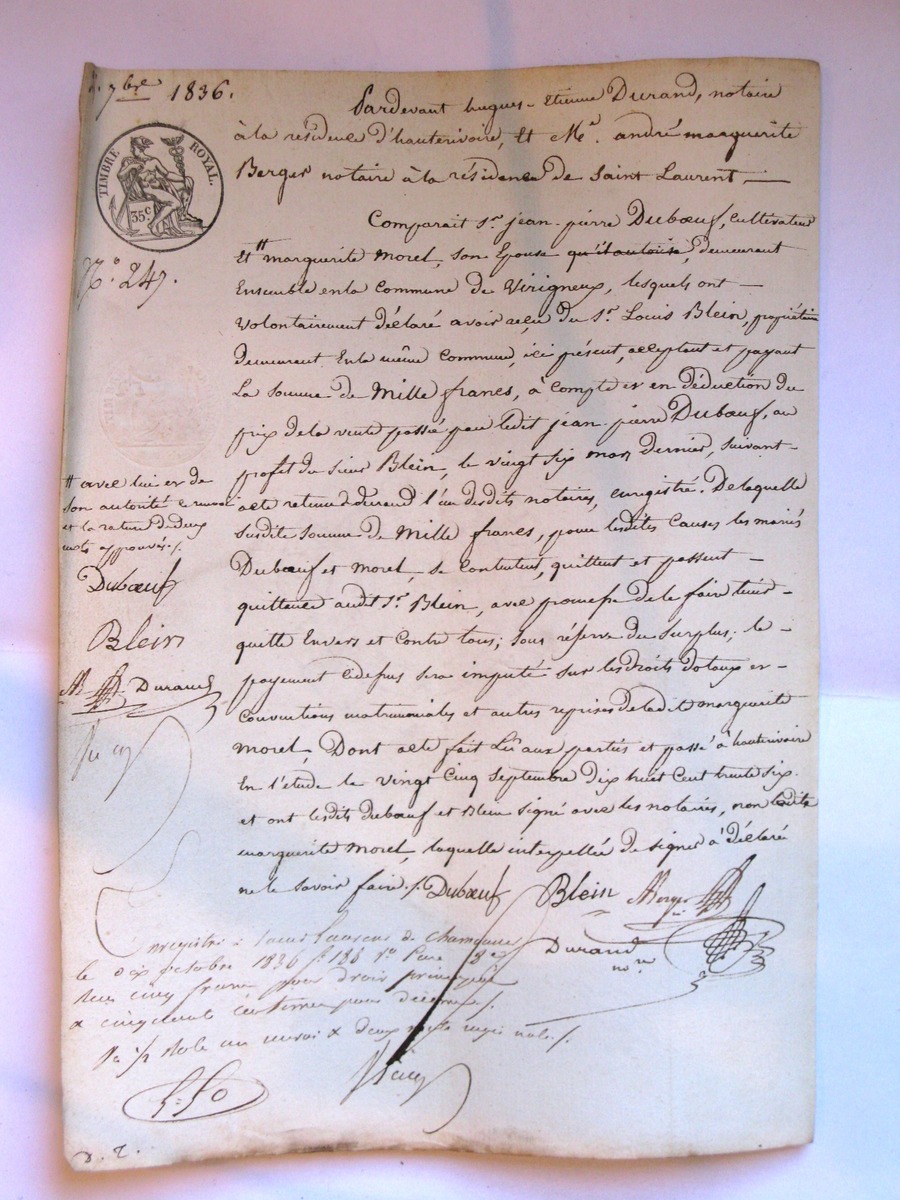 7bre 1836.
TIMBRE ROYAL.
35c
No 247.
Pardevant hugues-Etienne Durand, notaire
à la résidence d'hauterivoire, Et Me. andré marguerite
Berger notaire à la résidence de Saint Laurent —
Comparait Sr. jean-pierre Dubœuf, cultivateur
Et # marguerite Morel, son Epouse qu'il autorise, demeurant
Ensemble en la Commune de Virigneux, lesquels ont —
Volontairement déclaré avoir reçu du Sr. Louis Blein, propriétaire
demeurant En la même Commune, ici présent, acceptant et payant
La Somme de Mille francs, à compte et en déduction du
prix de la vente passée par ledit jean-pierre Dubœuf, au
profit du sieur Blein, le vingt six mars dernier, suivant
acte retenu durand l'un desdits notaires, enregistré. De laquelle
susdite somme de Mille francs, pour lesdites Causes les mariés
Dubœuf et Morel, se contentent, quittent et passent —
quittance audit Sr. Blein, avec promesse de le faire tenir
quitte Envers et Contre tous; sous réserve du surplus; le —
payement cidessus sera imputé sur les droits dotaux et
Conventions matrimoniales et autres reprises de ladite marguerite
Morel, Dont acte fait Lu aux parties et passé à hauterivoire
En l'étude le vingt Cinq Septembre dix huit Cent trente six.
et ont lesdits dubœuf et Blein signé avec les notaires, non ladite
marguerite Morel, laquelle interpellée de signer à déclaré
ne le savoir faire ./. Dubœuf Blein Berger
Durand
nore
# avec lui et de
son autorité le renvoi
et la rature de deux
mots approuvés ./.
Dubœuf
Blein
Durand
Enregistré à Saint Laurent de Chamousset
le dix octobre 1836 fo 186
Reçu cinq francs pour droit principal
& cinquante centimes pour décime ./.
un renvoi & deux mots rayés nuls ./.